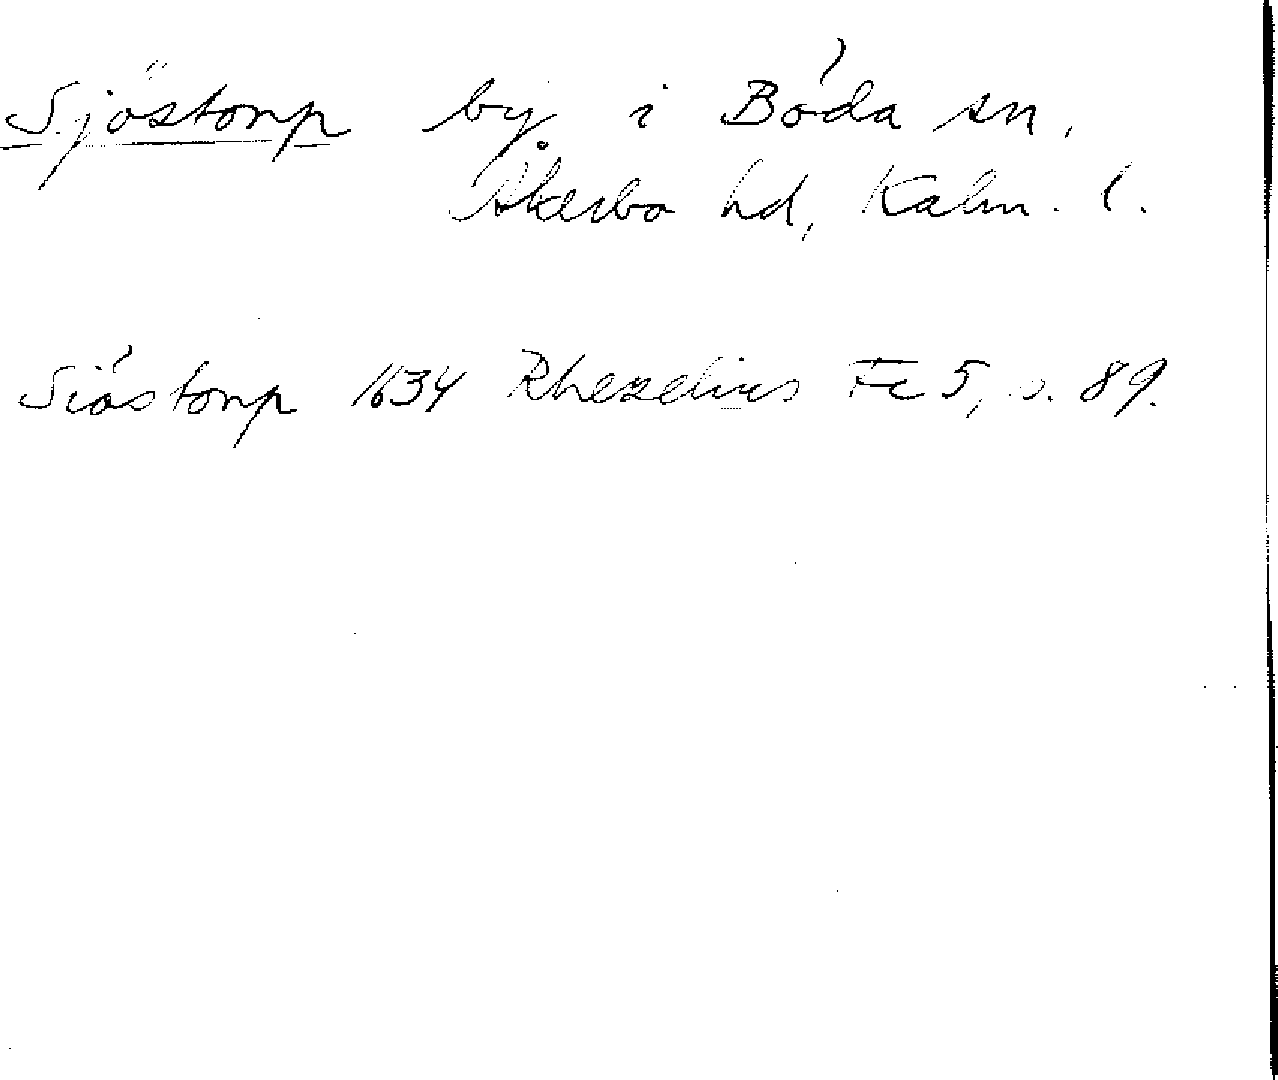 Sjöstorp by i Böda sn,
Åkerbo hd, Kalm. l.
Siöstorp 1634 Rhezelius Fc 5, s. 89.